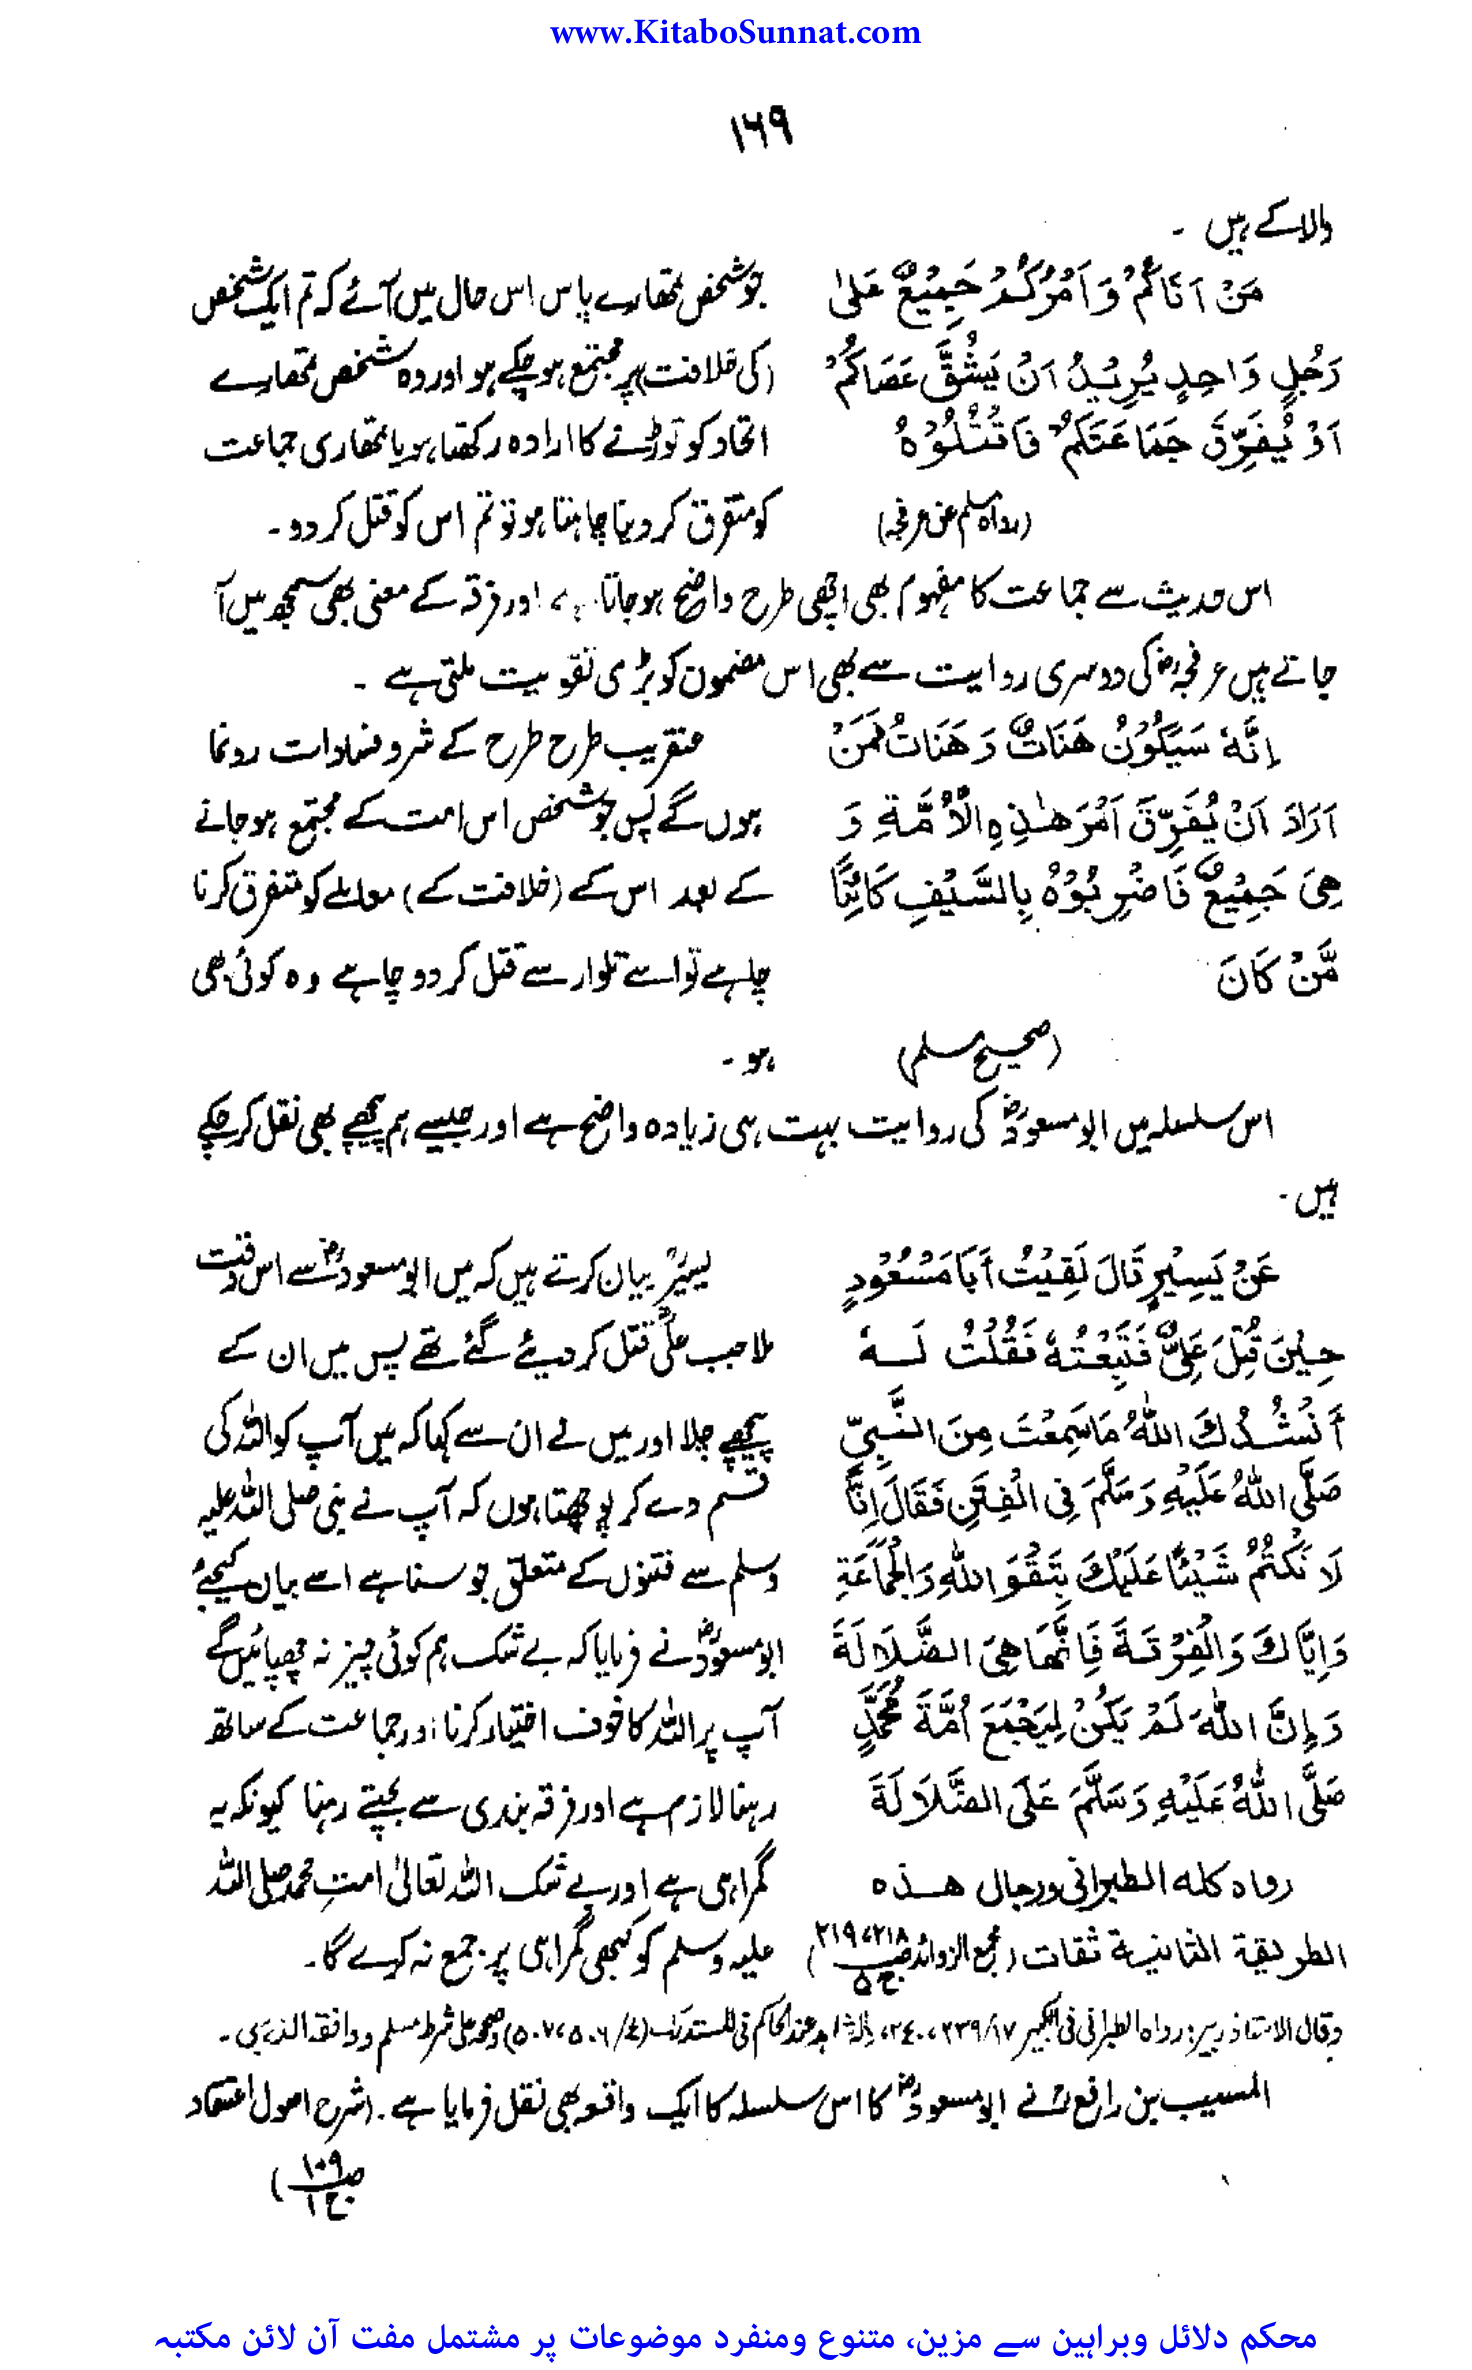 www.KitaboSunnat.com
۱۶۹
والا کے ہیں ۔
مَنْ اَتَاکُمْ وَاَمْرُکُمْ جَمِیْعٌ عَلیٰ
رَجُلٍ وَاحِدٍ یُرِیْدُ اَنْ یَشُقَّ عَصَاکُمْ
اَوْ یُفَرِّقَ جَمَاعَتَکُمْ فَاقْتُلُوْہُ
(رواہ مسلم عن عرفجہ)
جو شخص تمھارے پاس اس حال میں آئے کہ تم ایک شخص
(کی خلافت) پر مجتمع ہو چکے ہو اور وہ شخص تمھارے
اتحاد کو توڑنے کا ارادہ رکھتا ہو یا تمھاری جماعت
کو متفرق کر دینا چاہتا ہو تو تم اس کو قتل کر دو ۔
اس حدیث سے جماعت کا مفہوم بھی اچھی طرح واضح ہو جاتا ہے، اور فرقہ کے معنی بھی سمجھ میں آ
جاتے ہیں عرفجہؓ کی دوسری روایت سے بھی اس مضمون کو بڑی تقویت ملتی ہے ۔
اِنَّہٗ سَیَکُوْنُ ھَنَاتٌ وَھَنَاتٌ فَمَنْ
اَرَادَ اَنْ یُفَرِّقَ اَمْرَ ھٰذِہِ الْاُمَّۃِ وَ
ھِیَ جَمِیْعٌ فَاضْرِبُوْہُ بِالسَّیْفِ کَائِنًا
مَّنْ کَانَ
(صحیح مسلم)
عنقریب طرح طرح کے شر و فسادات رونما
ہوں گے پس جو شخص اس امت کے مجتمع ہو جانے
کے بعد اس کے (خلافت کے) معاملے کو متفرق کرنا
چاہے تو اسے تلوار سے قتل کر دو چاہے وہ کوئی بھی
ہو ۔
اس سلسلہ میں ابو مسعودؓ کی روایت بہت ہی زیادہ واضح ہے اور جیسے ہم پیچھے بھی نقل کر چکے
ہیں ۔
عَنْ یَسِیْرٍ قَالَ لَقِیْتُ أَبَا مَسْعُوْدٍ
حِیْنَ قُتِلَ عَلِیٌّ فَتَبِعْتُہٗ فَقُلْتُ لَہٗ
أَنْشُدُكَ اللہُ مَا سَمِعْتَ مِنَ النَّبِیِّ
صَلَّی اللہُ عَلَیْہِ وَسَلَّمَ فِی الْفِتَنِ فَقَالَ اِنَّا
لَا نَکْتُمُ شَیْئًا عَلَیْكَ بِتَقْوَ اللہِ وَالْجَمَاعَۃِ
وَاِیَّاكَ وَالْفِرْقَۃَ فَاِنَّھَا ھِیَ الضَّلَالَۃَ
وَاِنَّ اللہَ لَمْ یَکُنْ لِیَجْمَعَ اُمَّۃَ مُحَمَّدٍ
صَلَّی اللہُ عَلَیْہِ وَسَلَّمَ عَلَی الضَّلَالَۃَ
رواہ کلہ الطبرانی ورجال ھذہ
الطریقۃ الثانیۃ ثقات (مجمع الزوائد ص ۲۱۸، ۲۱۹ ج ۵)
یسیرؒ بیان کرتے ہیں کہ میں ابو مسعودؓ سے اس وقت
ملا جب علیؓ قتل کر دیئے گئے تھے پس میں ان کے
پیچھے چلا اور میں نے ان سے کہا کہ میں آپ کو اللہ کی
قسم دے کر پوچھتا ہوں کہ آپ نے نبی صلی اللہ علیہ
وسلم سے فتنوں کے متعلق جو سنا ہے اسے بیان کیجئے
ابو مسعودؓ نے فرمایا کہ بے شک ہم کوئی چیز نہ چھپائیں گے
آپ پر اللہ کا خوف اختیار کرنا اور جماعت کے ساتھ
رہنا لازم ہے اور فرقہ بندی سے بچتے رہنا کیونکہ یہ
گمراہی ہے اور بے شک اللہ تعالیٰ امتِ محمد صلی اللہ
علیہ وسلم کو کبھی گمراہی پر جمع نہ کرے گا ۔
وقال الاستاذ زبیر: رواہ الطبرانی فی الکبیر ۱۷/۲۳۹، ۲۴۰، والشاہد عند الحاکم فی المستدرک (۴/ ۵۰۶، ۵۰۷) وصححہ علی شرط مسلم ووافقہ الذہبی ۔
المسیب بن رافعؒ نے ابو مسعودؓ کا اس سلسلہ کا ایک واقعہ بھی نقل فرمایا ہے ۔ (شرح اصول اعتقاد
ص ۱۰۹ ج ۱)
محکم دلائل وبراہین سے مزین، متنوع ومنفرد موضوعات پر مشتمل مفت آن لائن مکتبہ